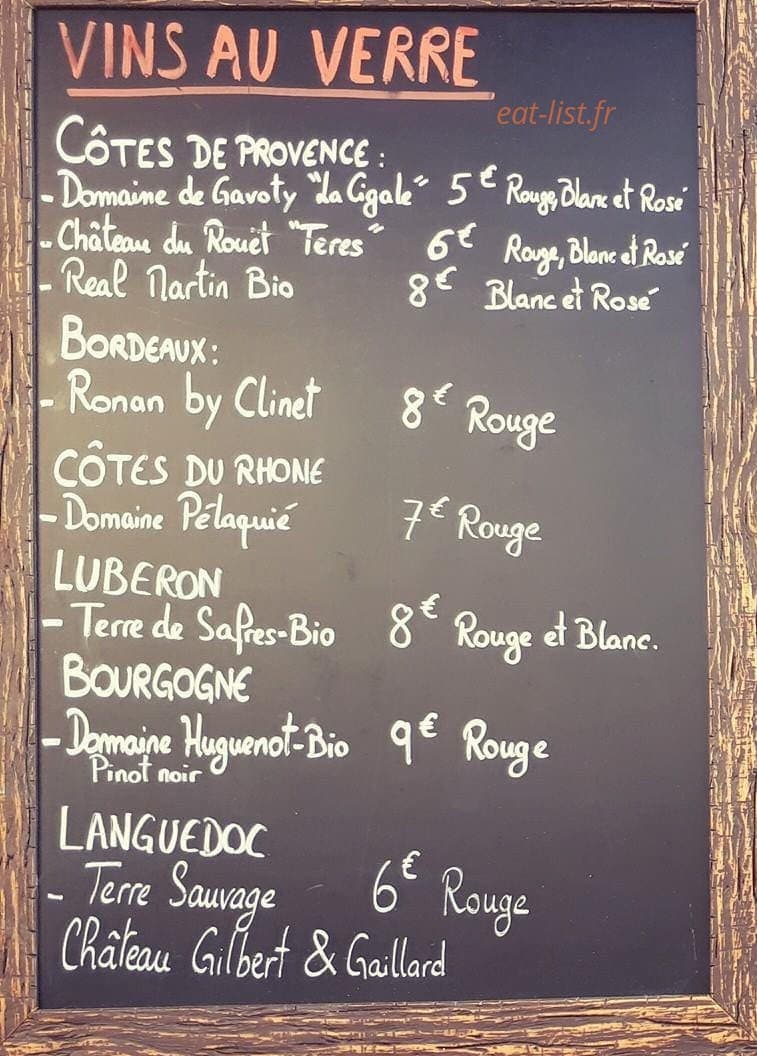 VINS AU VERRE
eat-list.fr
CÔTES DE PROVENCE :
- Domaine de Gavoty "La Cigale" 5€ Rouge, Blanc et Rosé
- Château du Rouët "Teres" 6€ Rouge, Blanc et Rosé
- Real Martin Bio 8€ Blanc et Rosé
BORDEAUX:
- Ronan by Clinet 8€ Rouge
CÔTES DU RHONE
- Domaine Pélaquié 7€ Rouge
LUBERON
- Terre de Safres-Bio 8€ Rouge et Blanc.
BOURGOGNE
- Domaine Huguenot-Bio 9€ Rouge
Pinot noir
LANGUEDOC
- Terre Sauvage 6€ Rouge
Château Gilbert & Gaillard